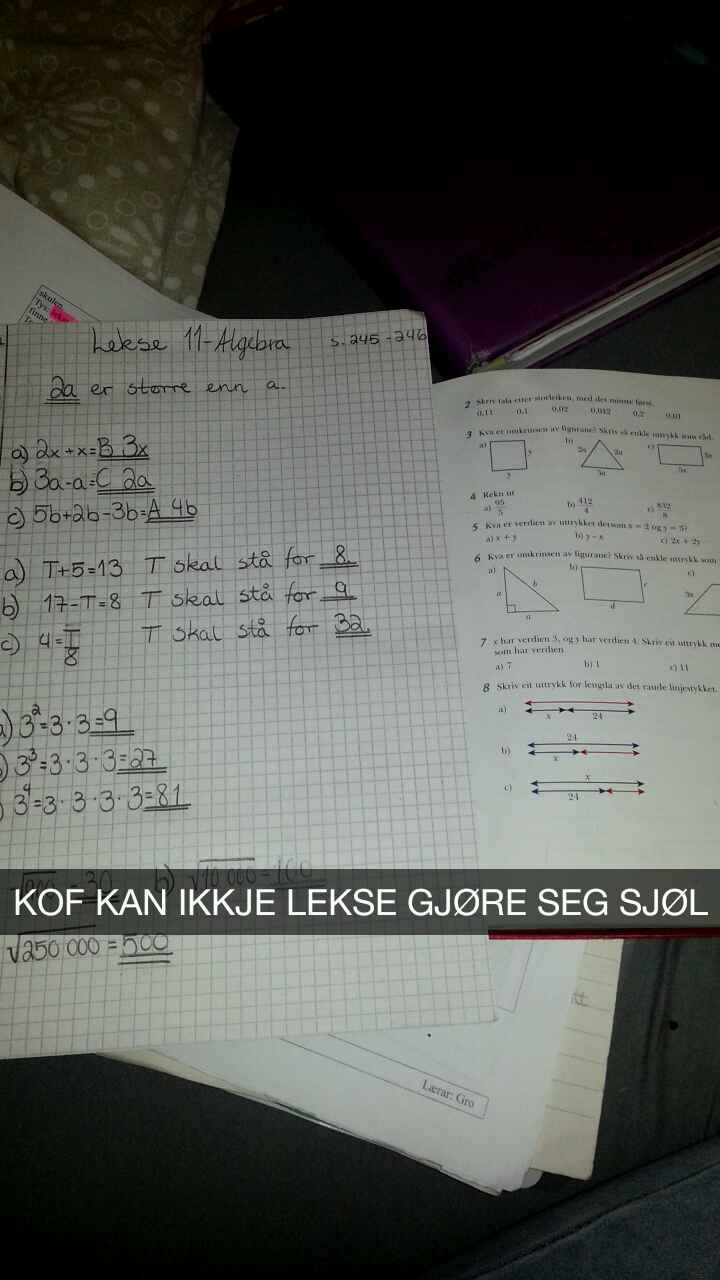 skuln
Lekse 11-Algebra s. 245-246
2a er større enn a.
a) 2x+x=B 3x
b) 3a-a=C 2a
c) 5b+2b-3b=A 4b
a) T+5=13 T skal stå for 8.
b) 17-T=8 T skal stå for 9
c) 4=T/8 T skal stå for 32.
3²=3·3=9
3³=3·3·3=27
3⁴=3·3·3·3=81
=30 b) √10 000=100
KOF KAN IKKJE LEKSE GJØRE SEG SJØL
√250 000=500
2 Skriv tala etter storleiken, med det minste først.
0,11 0,1 0,02 0,012 0,2 0,01
3 Kva er omkrinsen av figurane? Skriv så enkle uttrykk som råd.
a) b) c)
y 2a 2a
y 3a 5x
4 Rekn ut
a) 95/5 b) 412/4 c) 832/8
5 Kva er verdien av uttrykket dersom x = 2 og y = 5?
a) x + y b) y – x c) 2x + 2y
6 Kva er omkrinsen av figurane? Skriv så enkle uttrykk som
a) b) c)
a b c 3x
a d
7 x har verdien 3, og y har verdien 4. Skriv eit uttrykk
som har verdien
a) 7 b) 1 c) 11
8 Skriv eit uttrykk for lengda av det raude linjestykket.
a) x 24
b) 24
x
c) x
24
Lærar: Gro